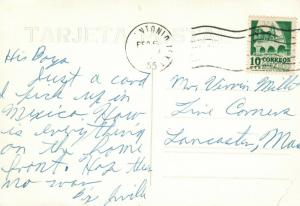 TARJETA POSTAL
ANTONIO
FEB
55
10 CORREOS
His Boys
Just a card
I pick up in
Mexico. How
is every thing
on the home
front. Hop the
no war.
Mr Vervin
Five Corners
Lancaster, Mass